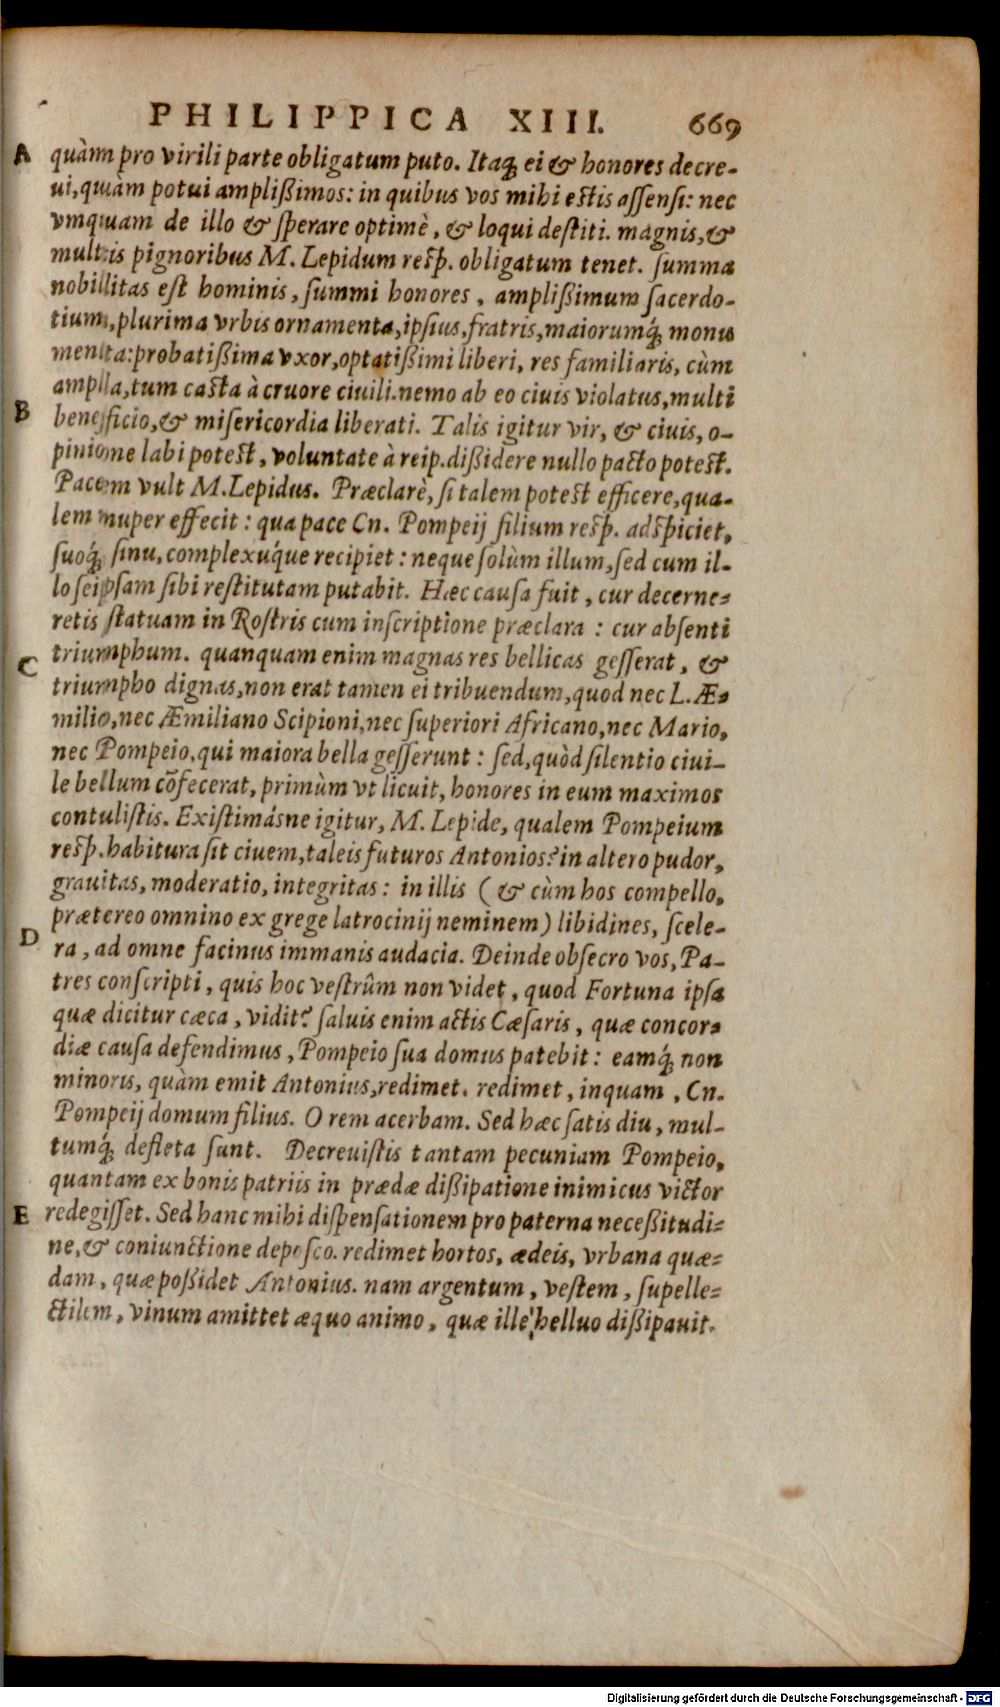 PHILIPPICA XIII. 669
A quàm pro virili parte obligatum puto. Itaq; ei & honores decre-
ui, quàm potui amplißimos: in quibus vos mihi estis assensi: nec
vmquam de illo & sperare optimè, & loqui destiti. magnis, &
multis pignoribus M. Lepidum resp. obligatum tenet. summa
nobilitas est hominis, summi honores, amplißimum sacerdo-
tium, plurima vrbis ornamenta, ipsius, fratris, maiorumq́; monu
menta: probatißima vxor, optatißimi liberi, res familiaris, cùm
ampla, tum casta à cruore ciuili. nemo ab eo ciuis violatus, multi
B beneficio, & misericordia liberati. Talis igitur vir, & ciuis, o-
pinione labi potest, voluntate à reip. dißidere nullo pacto potest.
Pacem vult M. Lepidus. Præclarè, si talem potest efficere, qua-
lem nuper effecit: qua pace Cn. Pompeij filium resp. adspiciet,
suoq́; sinu, complexúque recipiet: neque solùm illum, sed cum il-
lo seipsam sibi restitutam putabit. Hæc causa fuit, cur decerne-
retis statuam in Rostris cum inscriptione præclara: cur absenti
C triumphum. quanquam enim magnas res bellicas gesserat, &
triumpho dignas, non erat tamen ei tribuendum, quod nec L. Æ-
milio, nec Æmiliano Scipioni, nec superiori Africano, nec Mario,
nec Pompeio, qui maiora bella gesserunt: sed, quòd silentio ciui-
le bellum cõfecerat, primùm vt licuit, honores in eum maximos
contulistis. Existimásne igitur, M. Lepide, qualem Pompeium
resp. habitura sit ciuem, taleis futuros Antonios? in altero pudor,
grauitas, moderatio, integritas: in illis (& cùm hos compello,
prætereo omnino ex grege latrocinij neminem) libidines, scele-
D ra, ad omne facinus immanis audacia. Deinde obsecro vos, Pa-
tres conscripti, quis hoc vestrûm non videt, quod Fortuna ipsa
quæ dicitur cæca, vidit? saluis enim actis Cæsaris, quæ concor-
diæ causa defendimus, Pompeio sua domus patebit: eamq́; non
minoris, quàm emit Antonius, redimet. redimet, inquam, Cn.
Pompeij domum filius. O rem acerbam. Sed hæc satis diu, mul-
tumq́; defleta sunt. Decreuistis tantam pecuniam Pompeio,
quantam ex bonis patriis in prædæ dißipatione inimicus victor
E redegisset. Sed hanc mihi dispensationem pro paterna necessitudi-
ne, & coniunctione deposco. redimet hortos, ædeis, vrbana quæ-
dam, quæ poßidet Antonius. nam argentum, vestem, supelle-
ctilem, vinum amittet æquo animo, quæ ille helluo dißipauit.
Digitalisierung gefördert durch die Deutsche Forschungsgemeinschaft - DFG